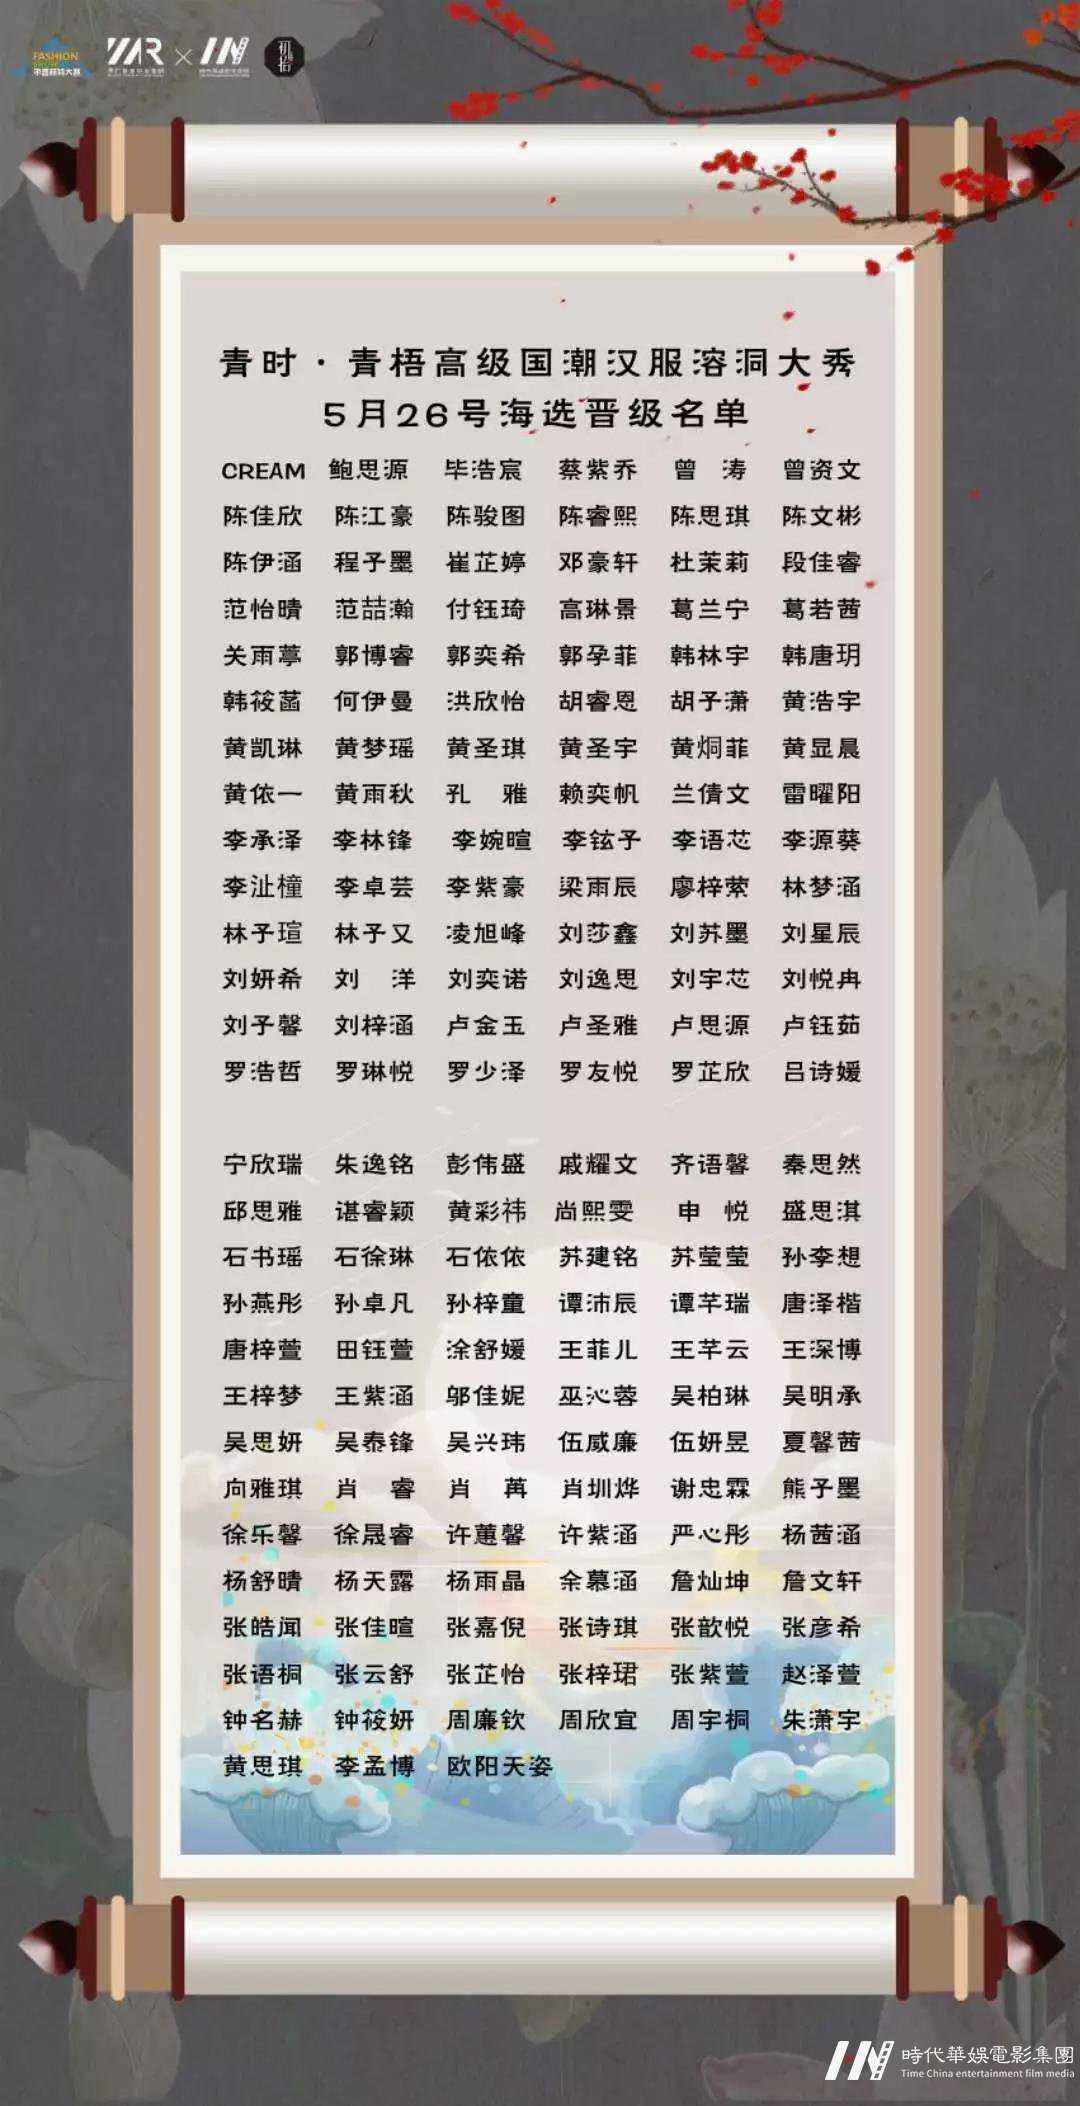 FASHION
初
拾
青时·青梧高级国潮汉服溶洞大秀
5月26号海选晋级名单
CREAM 鲍思源 毕浩宸 蔡紫乔 曾 涛 曾资文
陈佳欣 陈江豪 陈骏图 陈睿熙 陈思琪 陈文彬
陈伊涵 程予墨 崔芷婷 邓豪轩 杜茉莉 段佳睿
范怡晴 范喆瀚 付钰琦 高琳景 葛兰宁 葛若茜
关雨葶 郭博睿 郭奕希 郭孕菲 韩林宇 韩唐玥
韩筱菡 何伊曼 洪欣怡 胡睿恩 胡子潇 黄浩宇
黄凯琳 黄梦瑶 黄圣琪 黄圣宇 黄炯菲 黄显晨
黄依一 黄雨秋 孔 雅 赖奕帆 兰倩文 雷曜阳
李承泽 李林锋 李婉暄 李铉予 李语芯 李源葵
李沚橦 李卓芸 李紫豪 梁雨辰 廖梓萦 林梦涵
林予瑄 林予又 凌旭峰 刘莎鑫 刘苏墨 刘星辰
刘妍希 刘 洋 刘奕诺 刘逸思 刘宇芯 刘悦冉
刘予馨 刘梓涵 卢金玉 卢圣雅 卢思源 卢钰茹
罗浩哲 罗琳悦 罗少泽 罗友悦 罗芷欣 吕诗媛
宁欣瑞 朱逸铭 彭伟盛 戚耀文 齐语馨 秦思然
邱思雅 谌睿颖 黄彩祎 尚熙雯 申 悦 盛思淇
石书瑶 石徐琳 石依依 苏建铭 苏莹莹 孙李想
孙燕彤 孙卓凡 孙梓童 谭沛辰 谭芊瑞 唐泽楷
唐梓萱 田钰萱 涂舒媛 王菲儿 王芊云 王深博
王梓梦 王紫涵 邬佳妮 巫沁蓉 吴柏琳 吴明承
吴思妍 吴泰锋 吴兴玮 伍威廉 伍妍昱 夏馨茜
向雅琪 肖 睿 肖 苒 肖圳烨 谢忠霖 熊子墨
徐乐馨 徐晟睿 许蕙馨 许紫涵 严心彤 杨茜涵
杨舒晴 杨天露 杨雨晶 余慕涵 詹灿坤 詹文轩
张皓闻 张佳暄 张嘉倪 张诗琪 张歆悦 张彦希
张语桐 张云舒 张芷怡 张梓珺 张紫萱 赵泽萱
钟名赫 钟筱妍 周廉钦 周欣宜 周宇桐 朱潇宇
黄思琪 李孟博 欧阳天姿
時代華娛電影集團
Time China entertainment film media